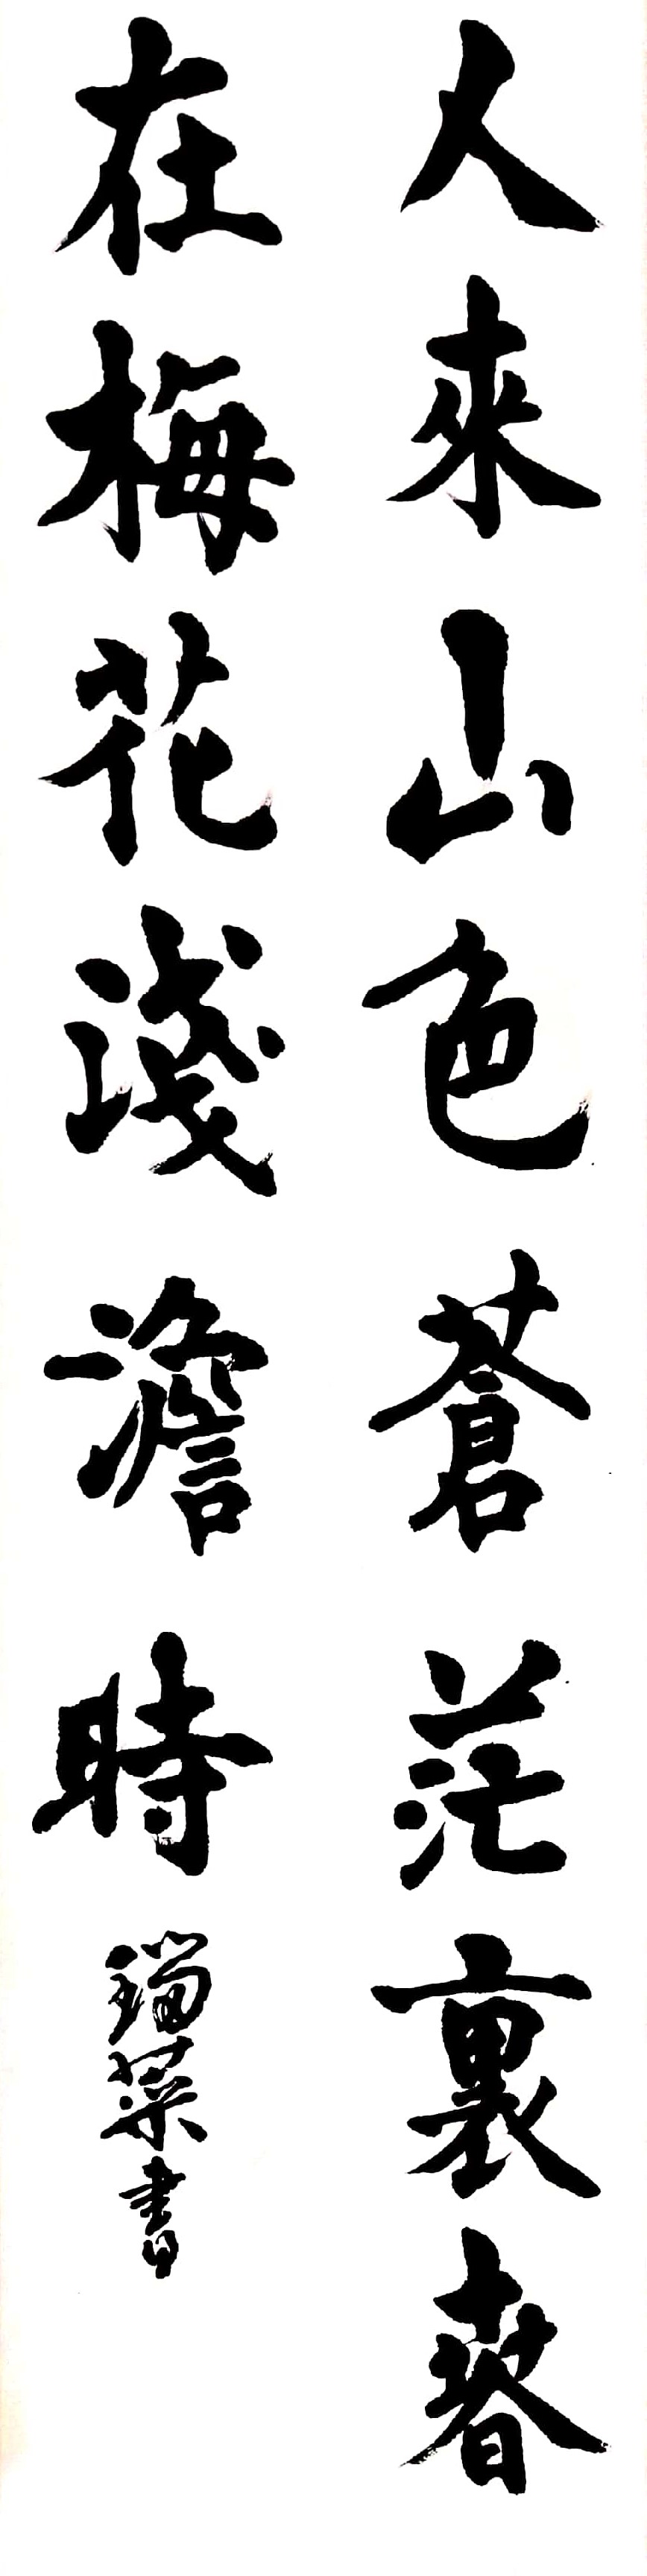 人來山色蒼茫裏春
在梅花淺澹時
書